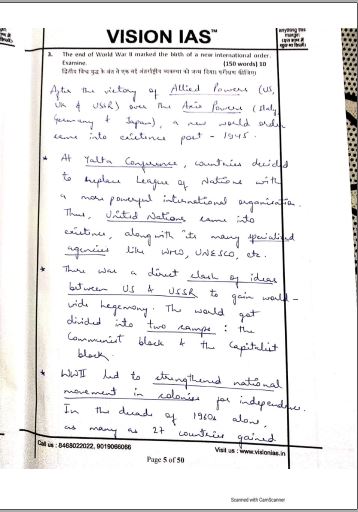 VISION IAS™
anything this
margin
3. The end of World War II marked the birth of a new international order.
Examine. (150 words) 10
द्वितीय विश्व युद्ध के अंत ने एक नई अंतर्राष्ट्रीय व्यवस्था को जन्म दिया। परीक्षण कीजिए।
After the victory of Allied Powers (US,
UK & USSR) over the Axis Powers (Italy,
Germany & Japan), a new world order
came into existence post - 1945.
* At Yalta Conference, countries decided
to replace League of Nations with
a more powerful international organisation.
Thus, United Nations came into
existence, along with its many specialised
agencies like WHO, UNESCO, etc.
* There was a direct clash of ideas
between US & USSR to gain world-
wide hegemony. The world got
divided into two camps: the
Communist block & the Capitalist
block.
* WWII led to strengthened national
movement in colonies for independence.
In the decade of 1960s alone,
as many as 27 countries gained
Call us : 8468022022, 9019066066
Visit us : www.visionias.in
Page 5 of 50
Scanned with CamScanner